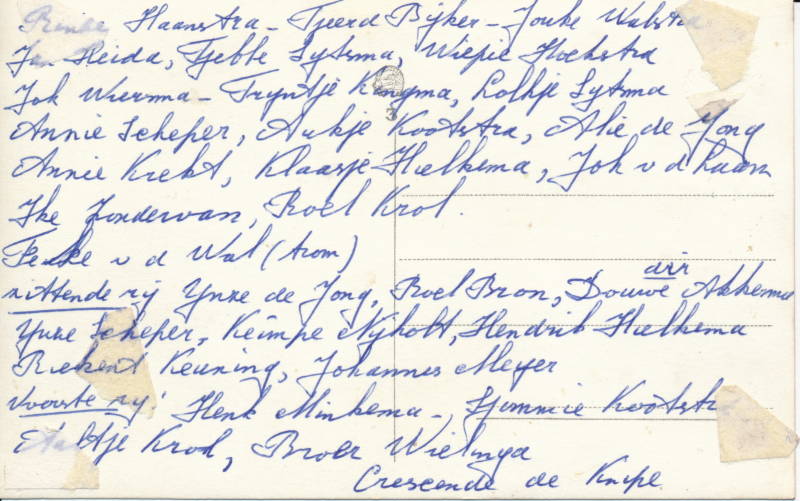 Rinke Haanstra - Tjeerd Bijker - Jouke Walstra
Jan Heida, Tjebbe Sytsma, Wiepie Hoekstra
Jok Wiersma - Tryntje Kingma, Lolkje Sytsma
3
Annie Scheper, Aukje Kootstra, Alie de Jong
Annie Krekt, Klaasje Hielkema, Joh v d Laan
Ike Zondervan, Roel Krol.
v d Wal (trom)
dir
zittende rij Ynze de Jong, Roel Bron, Douwe Akkerma
Ynze Scheper, Keimpe Nijholt, Hendrik Hielkema
Riekent Keuning, Johannes Meyer
Voorste rij Henk Minkema -, Hjammie Kootstra
Krol, Broer Wielinga
Crescendo de Knipe